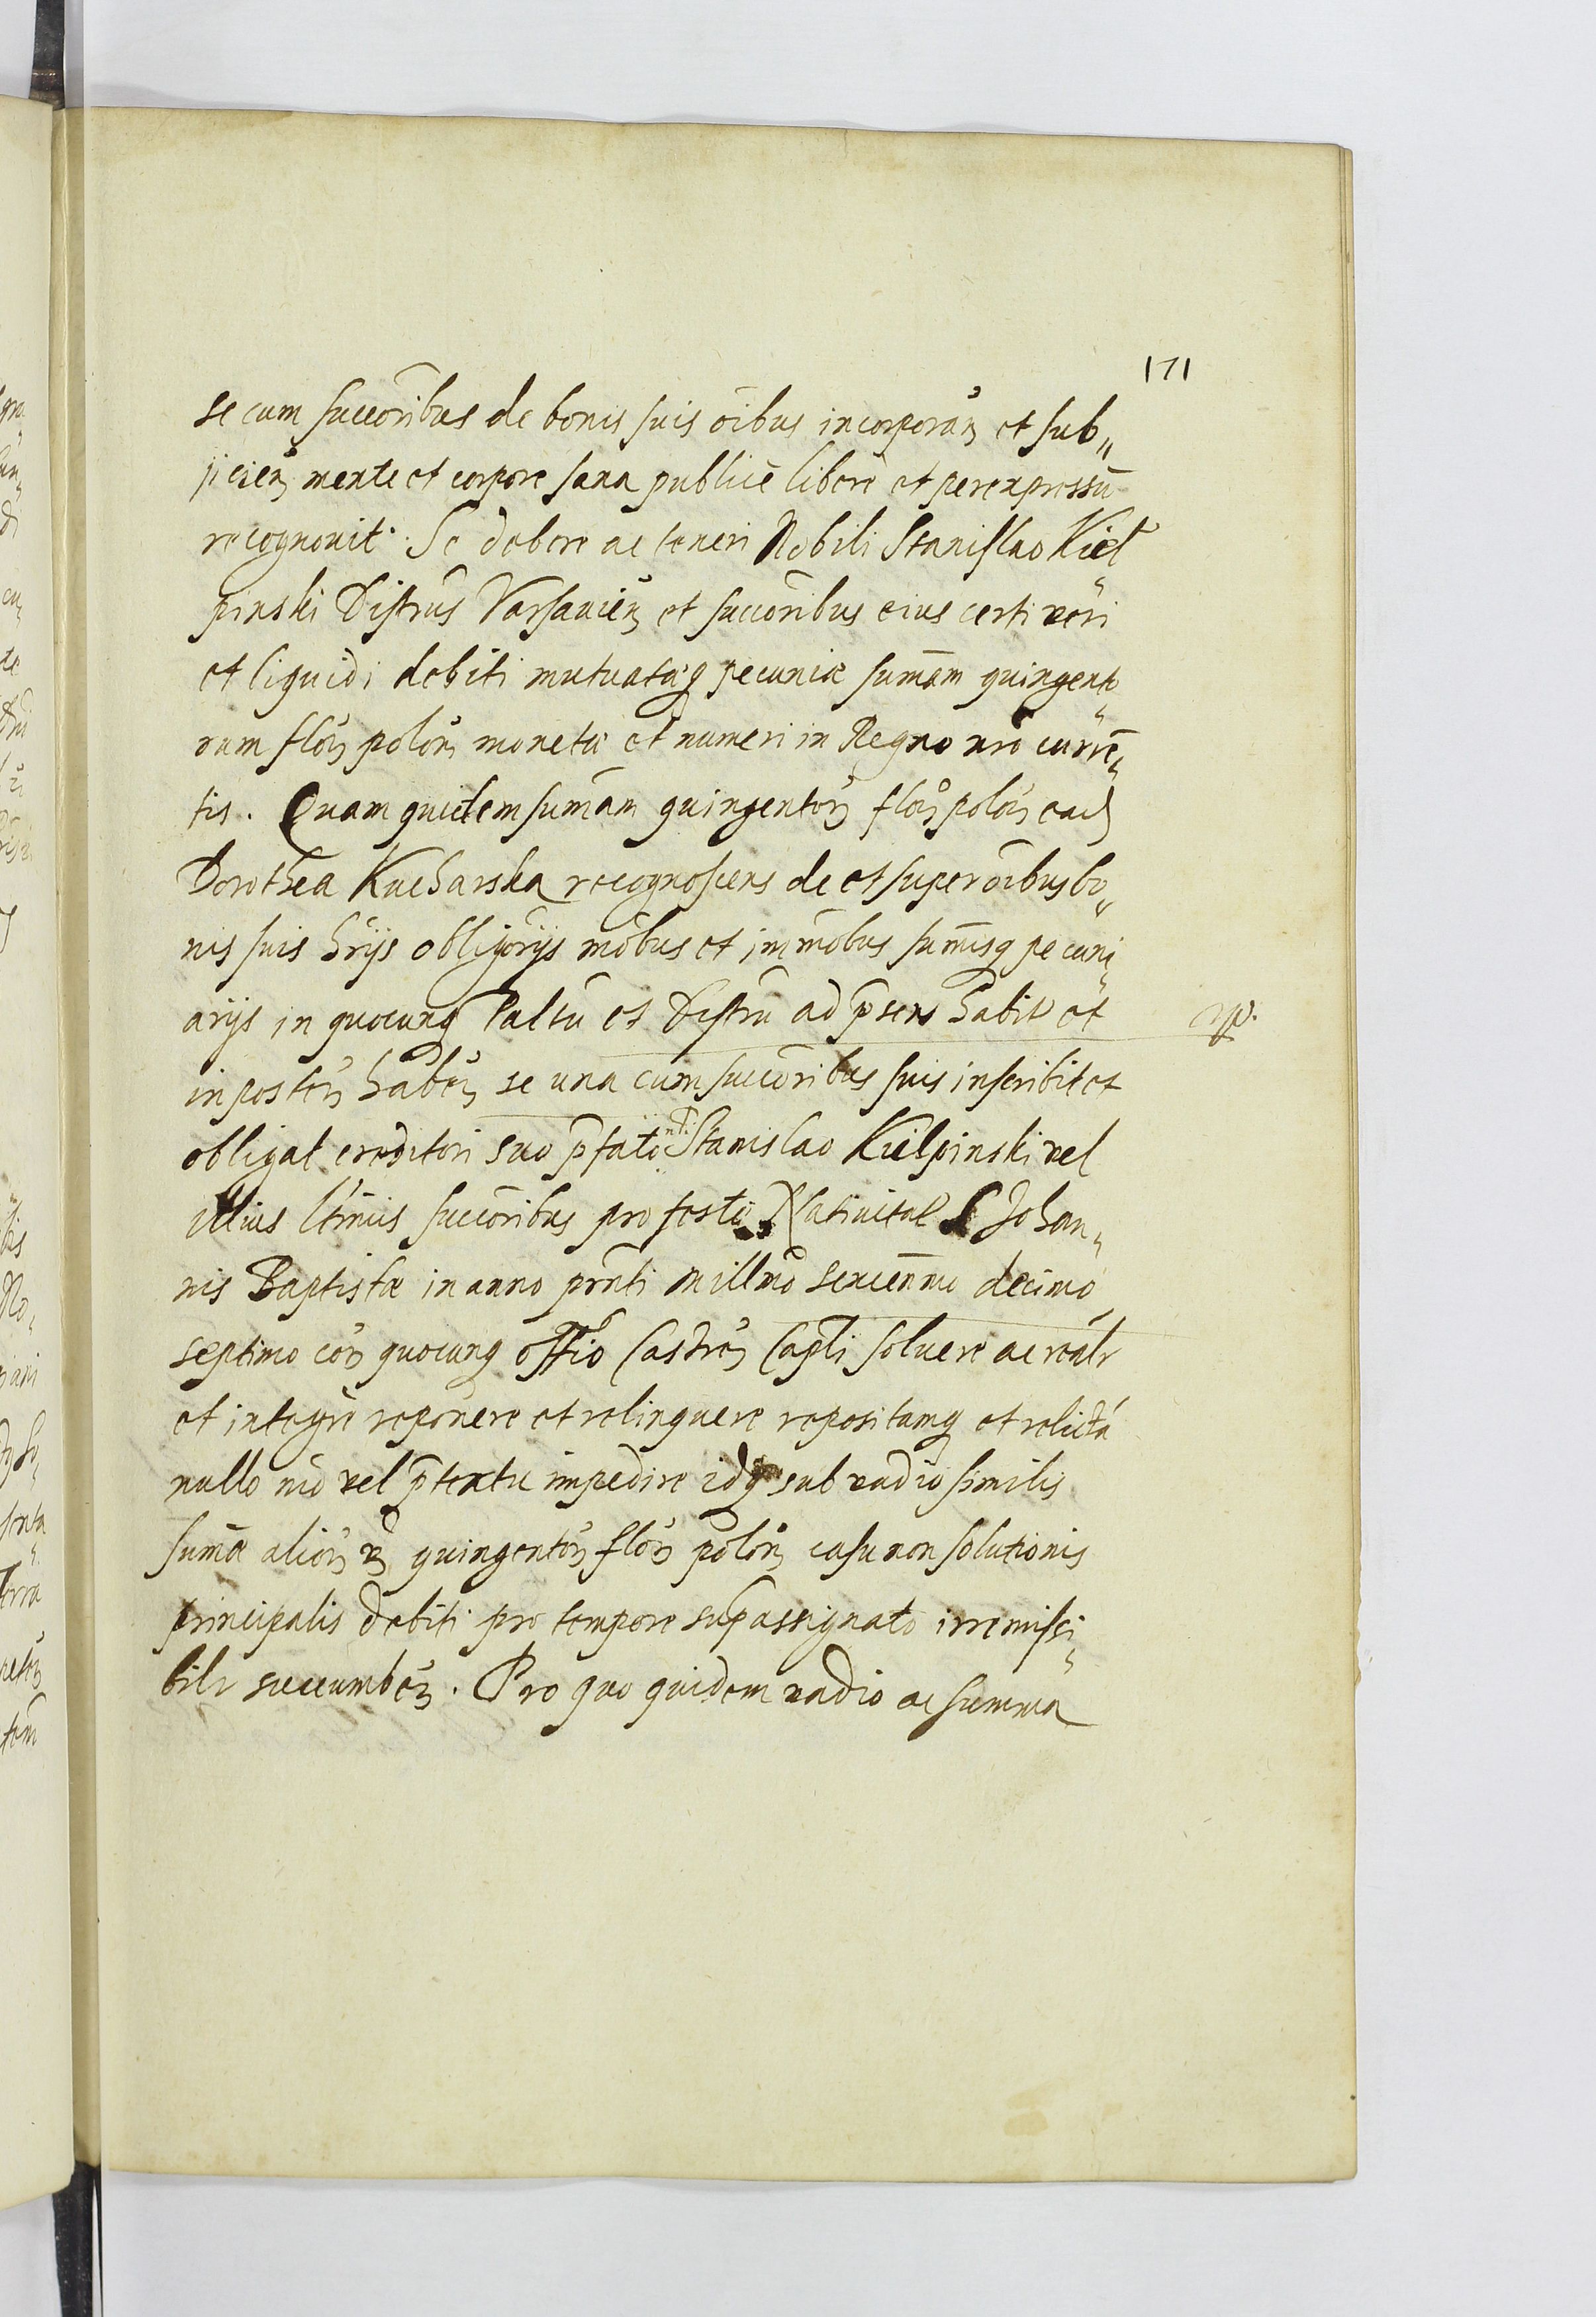 171
se cum succoribus de bonis suis oibus incorporan et sub„
jicien mente et corpore sana publice libere et per expressu
recognouit. Se debere ac teneri Nobili Stanislao Kieł„
pinski Distrus Varsauien et succoribus eius certi veri
et liquidi debiti mutuataq pecuniæ summam quingento„
rum flor polon monetæ et numeri in Regno nro curre„
tis. Quam quidem summam quingentor flor polon ead
Dorothea Kucharska recognoscens de et super oibus bo„
nis suis hrijs obligorijs mobus et immobus summisq pecuni„
arijs in quocunq Paltu et Distru ad psens habit et
in poster haben se una cum succoribus suis inscribit et
obligat creditori suo pfato ndi Stanislao Kiełpinski vel
illius ltimis succoribus pro festo Natiuitat S Johan„
nis Baptistæ in anno prnti millmo sexcenmo decimo
septimo cor quocunq offio Castren Capli soluere ac realr
et integre reponere et relinquere repositamq et relicta
nullo mo vel ptextu impedire idq sub vadio similis
summæ alior quingentor flor polon casu non solutionis
principalis debiti pro tempore sup assignato irremissi„
bilr succumben. Pro quo quidem vadio ac summa